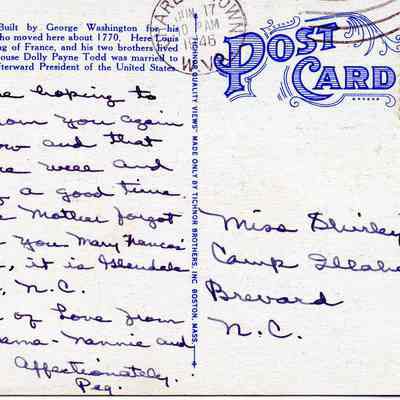 Built by George Washington for his
ho moved here about 1770. Here Louis
ng of France, and his two brothers lived
ouse Dolly Payne Todd was married to
fterward President of the United States
JUN 17
PM
1946
W.V
POST
CARD
"TICHNOR QUALITY VIEWS" MADE ONLY BY TICHNOR BROTHERS, INC. BOSTON, MASS.
hoping to
you again
ow and that
well and
a good time.
Mother forgot
you Mary Frances
, it is Glendale
, N.C.
of Love from
ama-Nannie and
Affectionately,
Peg.
Miss Shirley
Camp Illahe
Brevard
N.C.